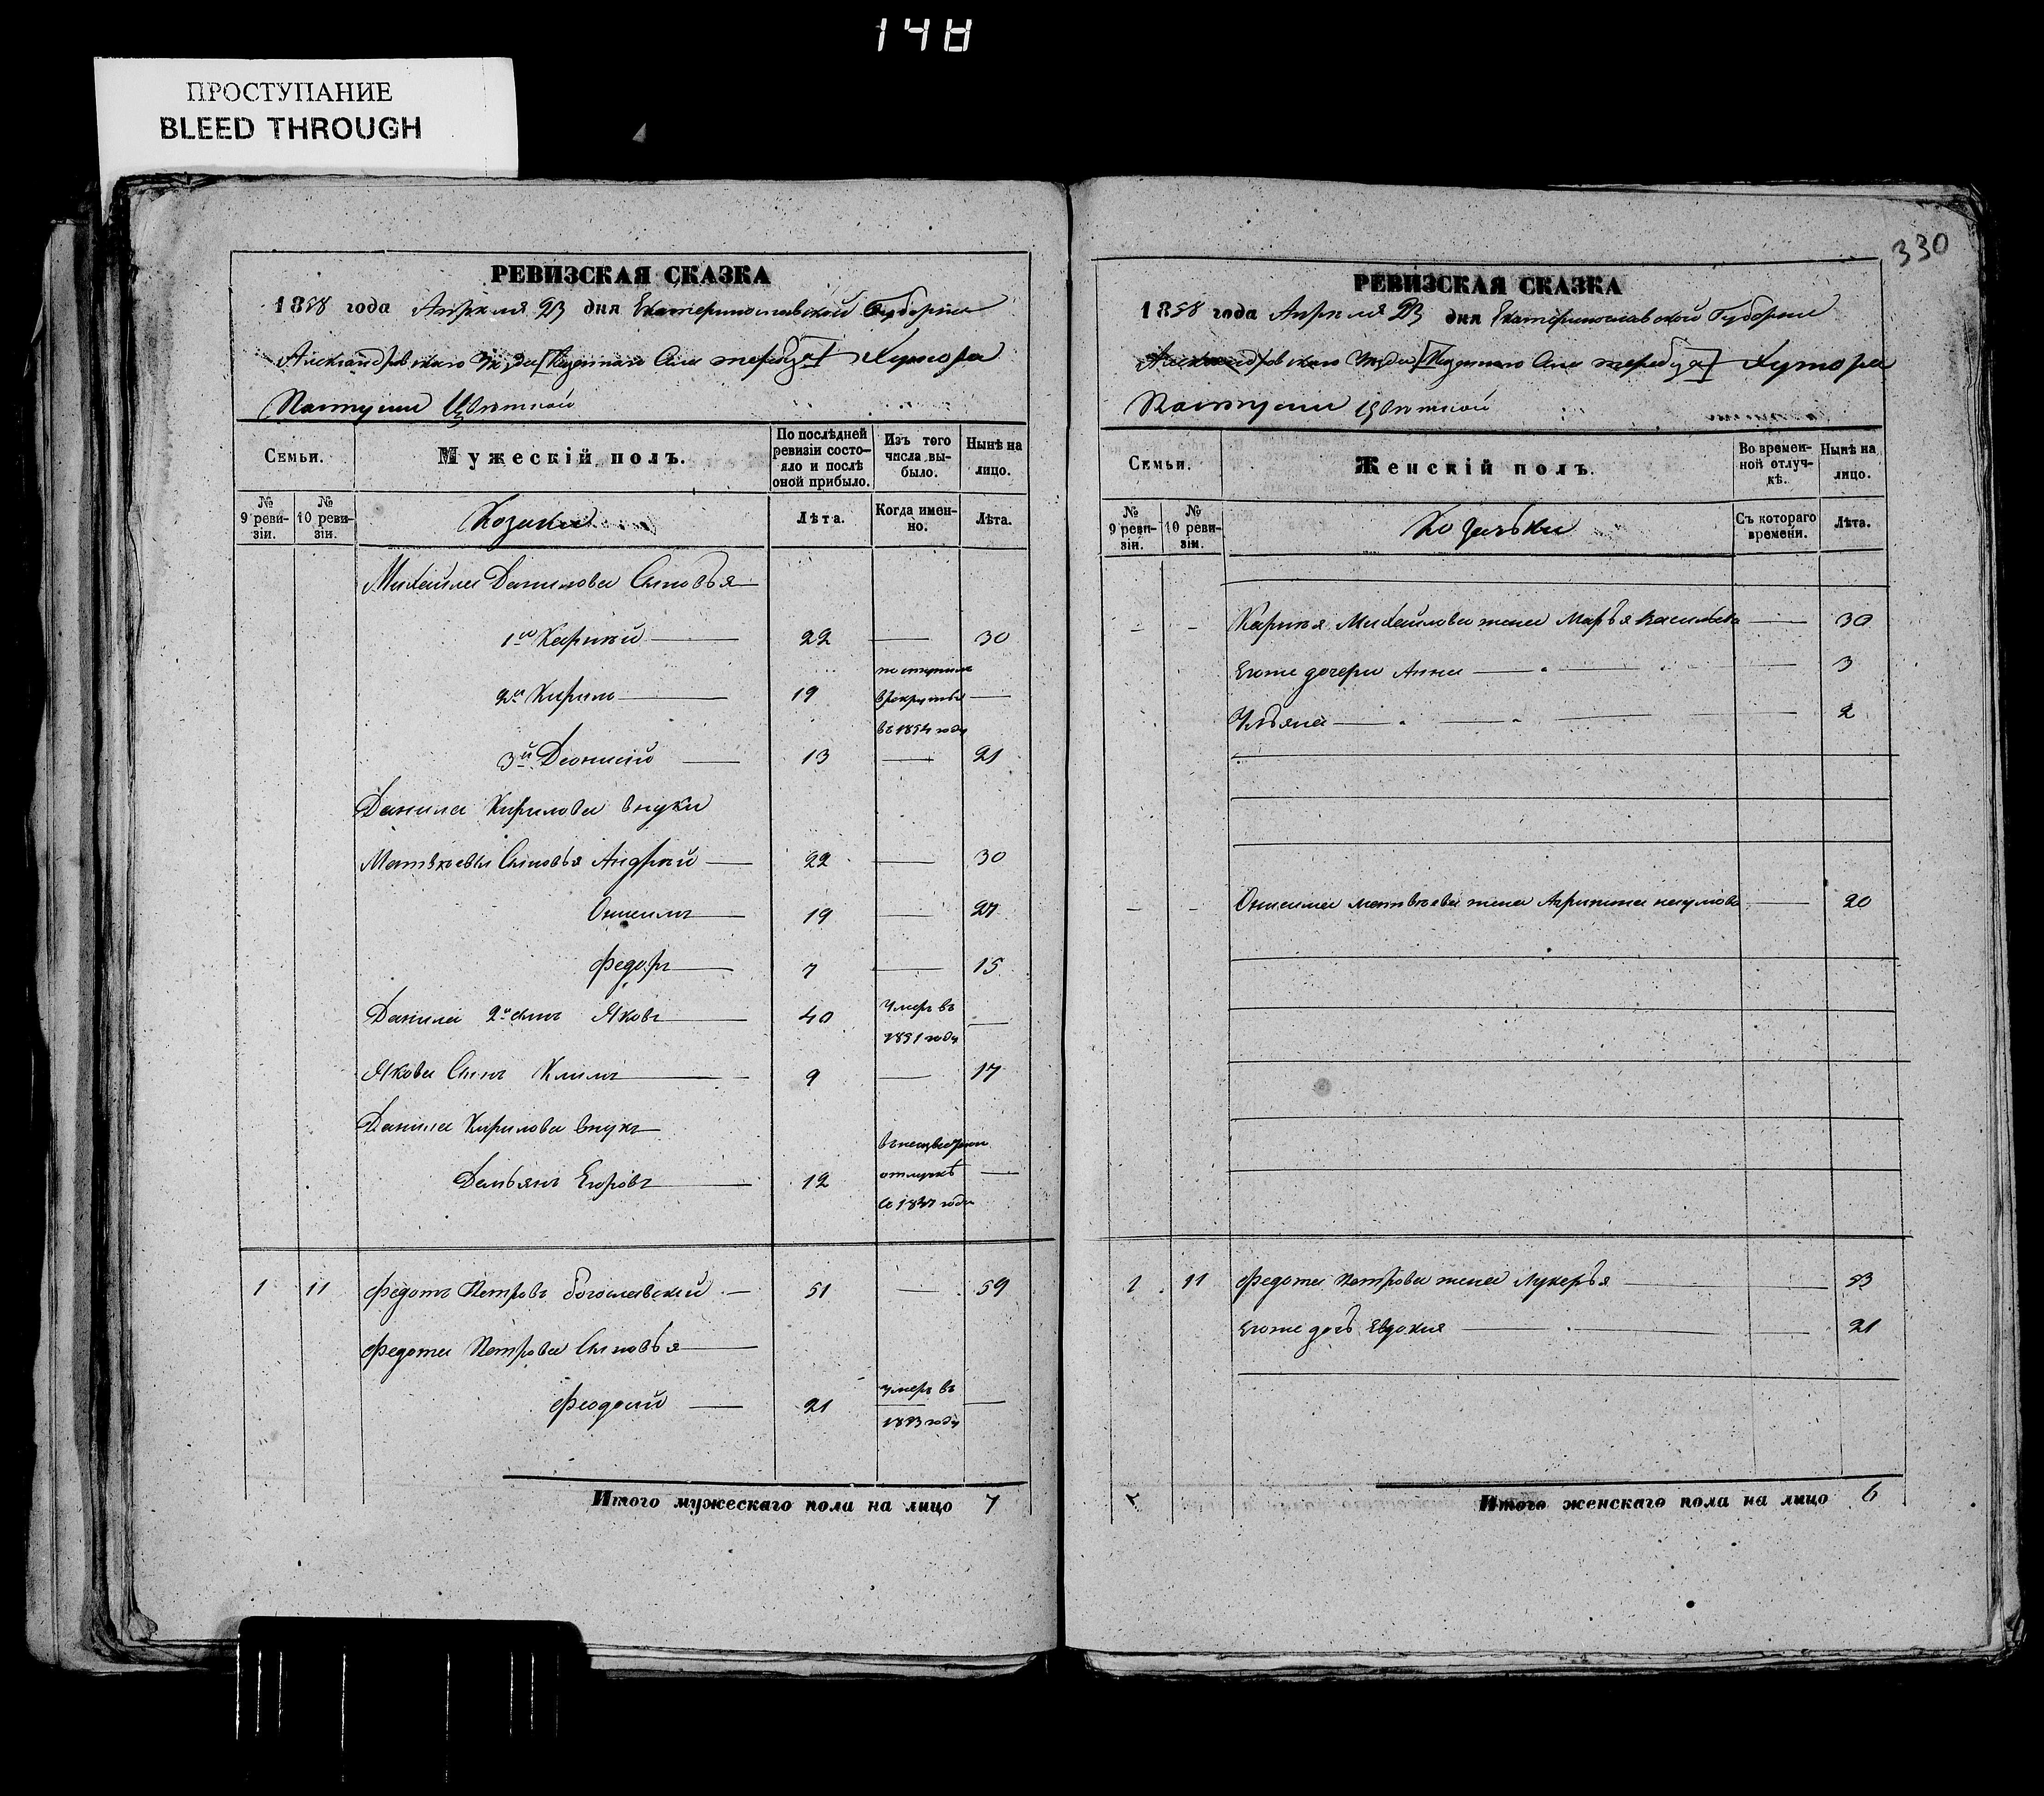 148
ПРОСТУПАНИЕ
BLEED THROUGH
330
РЕВИЗСКАЯ СКАЗКА
1858 года Апреля 23 дня Екатеринославской Губернии
Александровскаго Уезда Казеннаго Села Хутора
Цветной
Семьи.
Мужескій полъ.
По послѣдней ревизіи состояло и послѣ оной прибыло.
Изъ того числа выбыло.
Нынѣ на лицо.
№ 9 ревизіи.
№ 10 ревизіи.
Козаки
Лѣта.
Когда именно.
Лѣта.
Михайла Данилова Сыновья
1й Карпѣй 22 30
2й Кирилъ 19 въ рекруты въ 1854 году
3й Дионисій 13 21
Данила Кирилова внуки
Матвѣевы Сыновья Андрей 22 30
Онисимъ 19 27
Федоръ 7 15
Данила 2й сынъ Яковъ 40 Умеръ въ 1851 году
Якова Сынъ Климъ 9 17
Данила Кирилова внукъ
Демьянъ Егоровъ 12 отлучкѣ
1 11 Федотъ Петровъ Богославскій 51 59
Федота Петрова Сыновья
Феодосій 21 Умеръ въ 1853 году
Итого мужескаго пола на лицо 7
РЕВИЗСКАЯ СКАЗКА
1858 года Апреля 23 дня Екатеринославской Губернии
Александровскаго Уезда Казеннаго Села Хутора
Цветной
Семьи.
Женскій полъ.
Во временной отлучкѣ.
Нынѣ на лицо.
№ 9 ревизіи.
№ 10 ревизіи.
Козачьки
Съ котораго времени.
Лѣта.
Михайлова жена Марья Васильева 30
Егоже дочери Анна 3
Ульяна 2
Онисима Матвѣева жена Агрипина Наумова 20
1 11 Федота Петрова жена Лукерья 53
Егоже дочь Евдокия 21
Итого женскаго пола на лицо 6